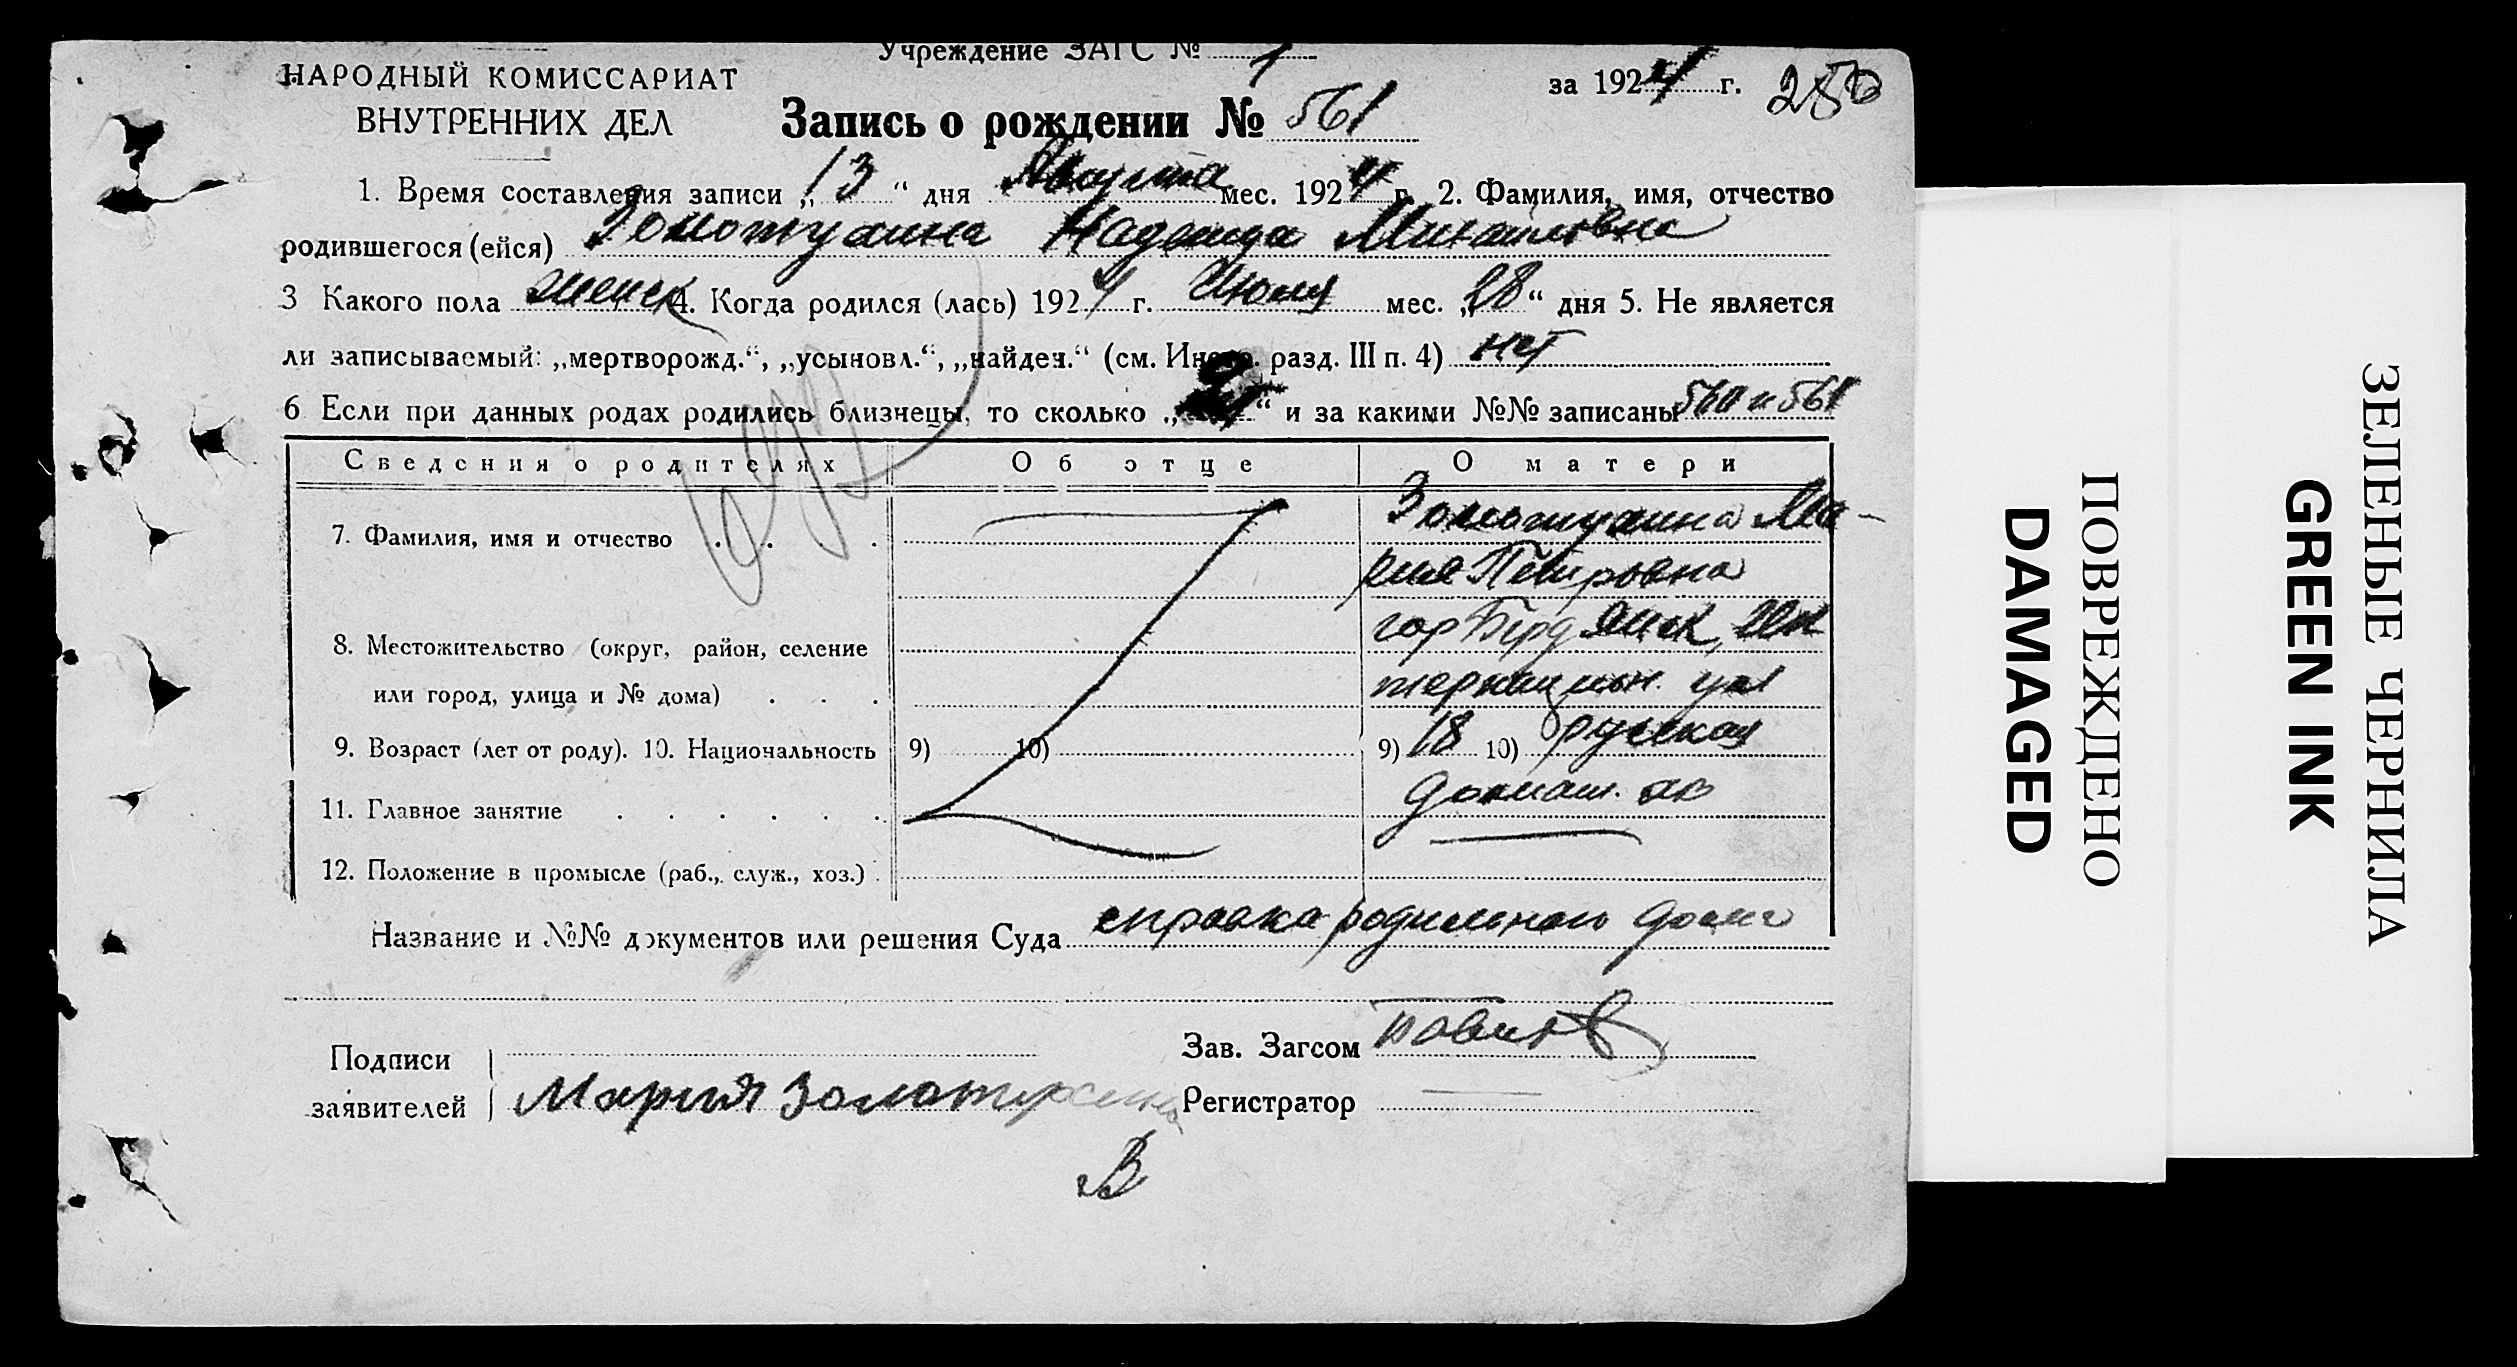 Учреждение ЗАГС № 1
НАРОДНЫЙ КОМИССАРИАТ
ВНУТРЕННИХ ДЕЛ
за 1924 г. 250
Запись о рождении № 561
1. Время составления записи „13“ дня Августа мес. 1924 г. 2. Фамилия, имя, отчество
родившегося (ейся) Золотухина Надежда Михайловна
3 Какого пола женск 4. Когда родился (лась) 1924 г. Июня мес. „28“ дня 5. Не является
ли записываемый: „мертворожд.“, „усыновл.“, „найден.“ (см. Инстр. разд. III п. 4) нет
6 Если при данных родах родились близнецы, то сколько „2“ и за какими №№ записаны 560 и 561
Сведения о родителях Об отце О матери
7. Фамилия, имя и отчество . . . Золотухина Ма-
рия Петровна
8. Местожительство (округ, район, селение гор Бердянск, Ин
или город, улица и № дома) . . . тернацион. ул
9. Возраст (лет от роду). 10. Национальность 9) 10) 9) 18 10) русская
11. Главное занятие . . . . . . домаш. хоз
12. Положение в промысле (раб., служ., хоз.) .
Название и №№ документов или решения Суда справка родильного дома
Подписи
заявителей Мария Золотухина
Зав. Загсом
Регистратор
В
ПОВРЕЖДЕНО
DAMAGED
ЗЕЛЕНЫЕ ЧЕРНИЛА
GREEN INK